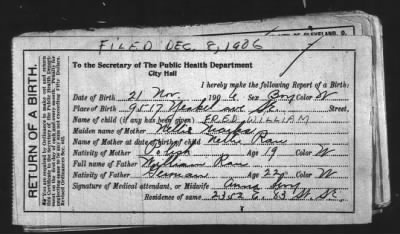 OF CLEVELAND, O.
FILED DEC. 8, 1906
RETURN OF A BIRTH.
To the Secretary of The Public Health Department
City Hall
I hereby make the following Report of a Birth:
Date of Birth 21 Nov. 190 6 Sex Boy Color W
Place of Birth 9517 St. Street,
Name of child (if any has been given) FRED WILLIAM
Maiden name of Mother Nellie
Name of Mother at date of birth of child Nellie Rau
Nativity of Mother Polish Age 19 Color W
Full name of Father William Rau
Nativity of Father German Age 22 Color W
Signature of Medical attendant, or Midwife Anna
Residence of same 2352 E. 83 St. S.E.